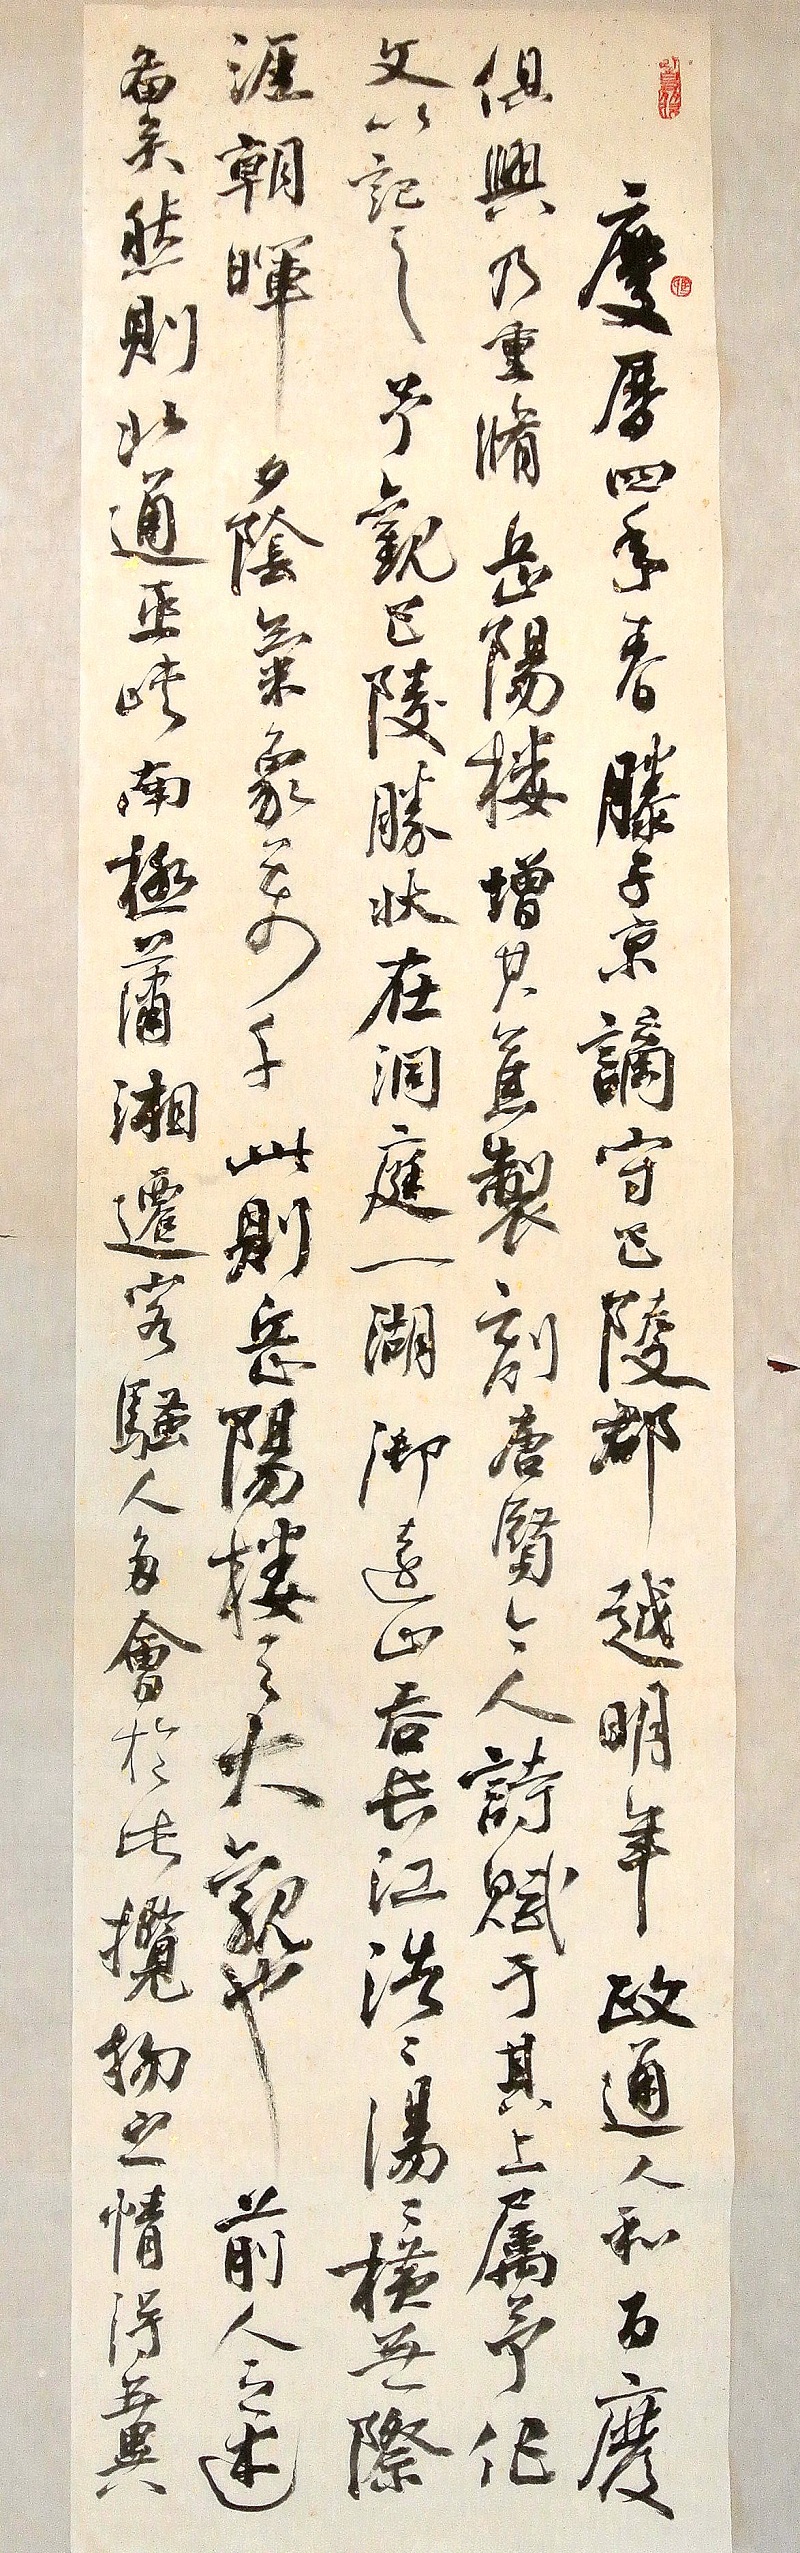 慶曆四年春滕子京謫守巴陵郡越明年政通人和百廢
俱興乃重脩岳陽楼增其舊製刻唐賢今人詩賦于其上属予作
文以記之予觀巴陵勝狀在洞庭一湖銜遠山吞長江浩〻湯〻橫無際
涯朝暉夕陰氣象萬千此則岳陽楼之大觀也前人之述
备矣然則北通巫峡南極瀟湘遷客騷人多會於此攬物之情得無異